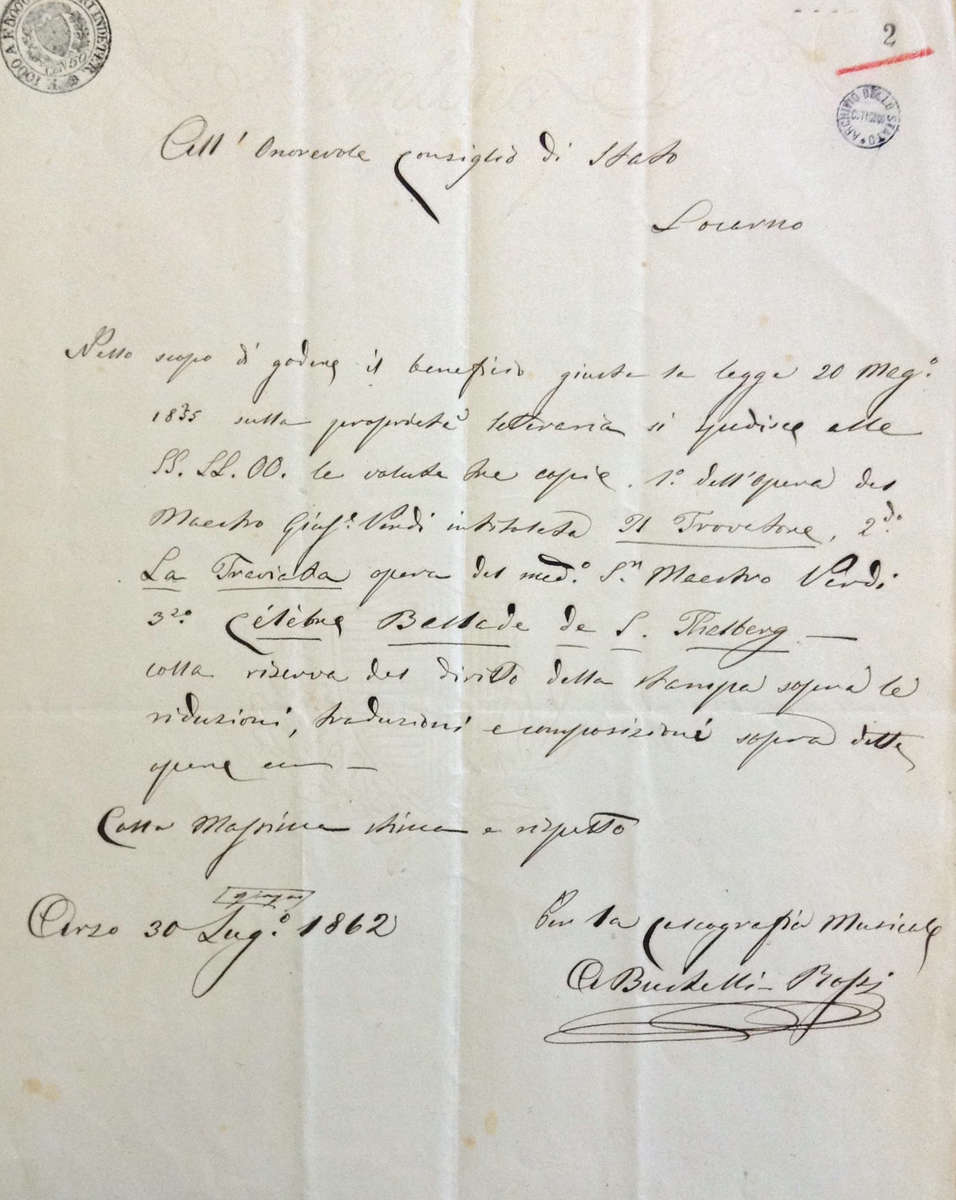 2
ARCHIVIO DELLO STATO
All' Onorevole Consiglio di Stato
Locarno
Nello scopo di godere il beneficio giusta la legge 20 Mag.o
1835 sulla proprietà letteraria si spedisce alle
SS. LL. OO. le volute tre copie. 1.o dell'Opera del
Maestro Gius.e Verdi intitolata Il Trovatore, 2.do
La Traviata opera del med.o S.r Maestro Verdi
3.zo Célèbre Ballade de S. Thalberg —
colla riserva del diritto della stampa sopra le
riduzioni, traduzioni e composizioni sopra dette
opere —
Colla Massima stima e rispetto
giugno
Arzo 30 Lug.o 1862
Per la Calcografia Musicale
C Bustelli-Rossi